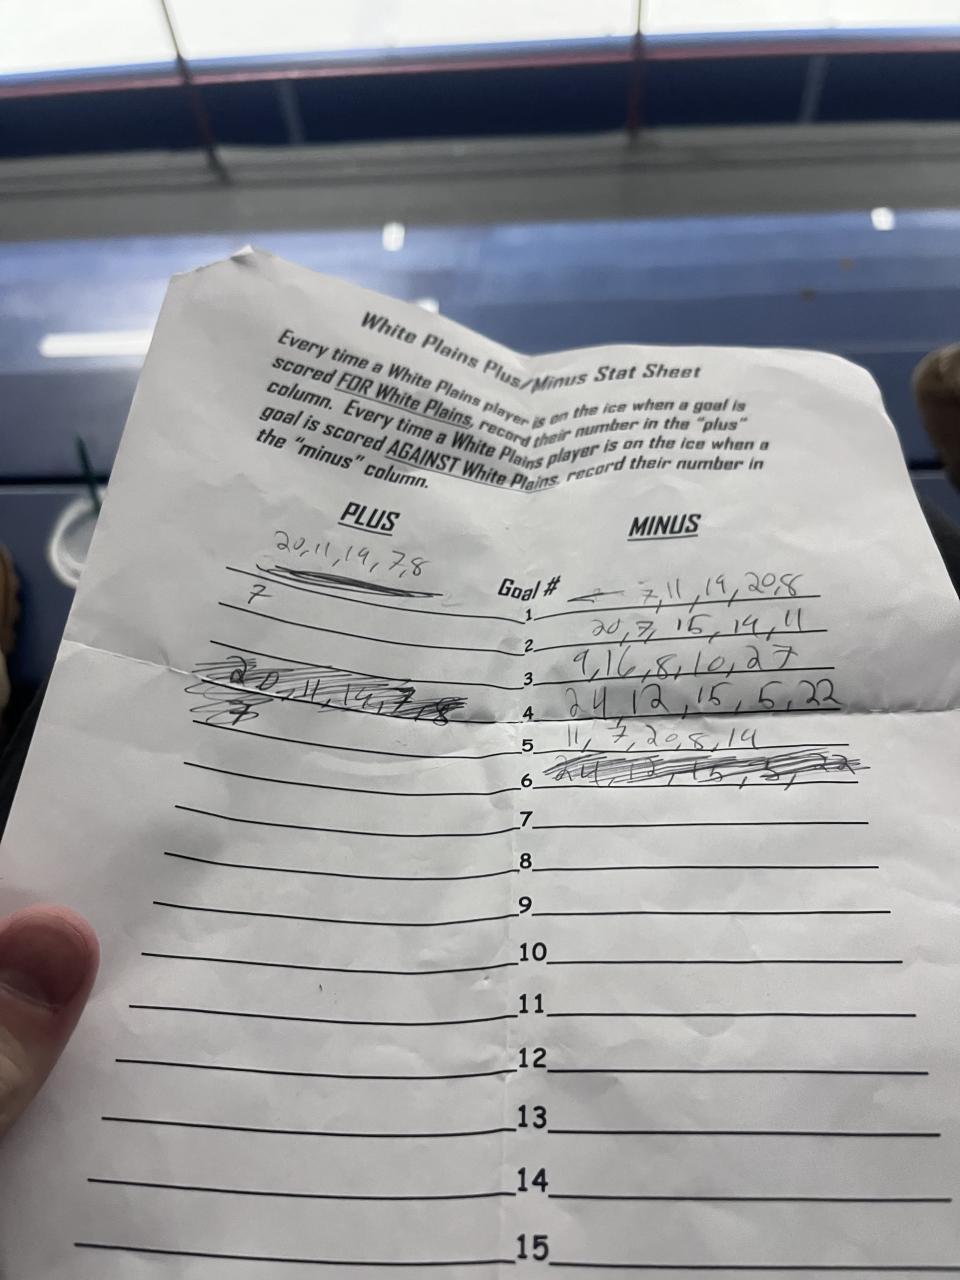 White Plains Plus/Minus Stat Sheet
Every time a White Plains player is on the ice when a goal is
scored FOR White Plains, record their number in the "plus"
column. Every time a White Plains player is on the ice when a
goal is scored AGAINST White Plains, record their number in
the "minus" column.
PLUS
MINUS
20, 11, 19, 7, 8
Goal #
7, 11, 19, 20, 8
1
7
20, 7, 15, 19, 11
2
9, 16, 8, 10, 27
3
20, 11, 19, 7, 8
24, 12, 15, 5, 22
4
7
11, 7, 20, 8, 19
5
24, 12, 15, 5, 22
6
7
8
9
10
11
12
13
14
15